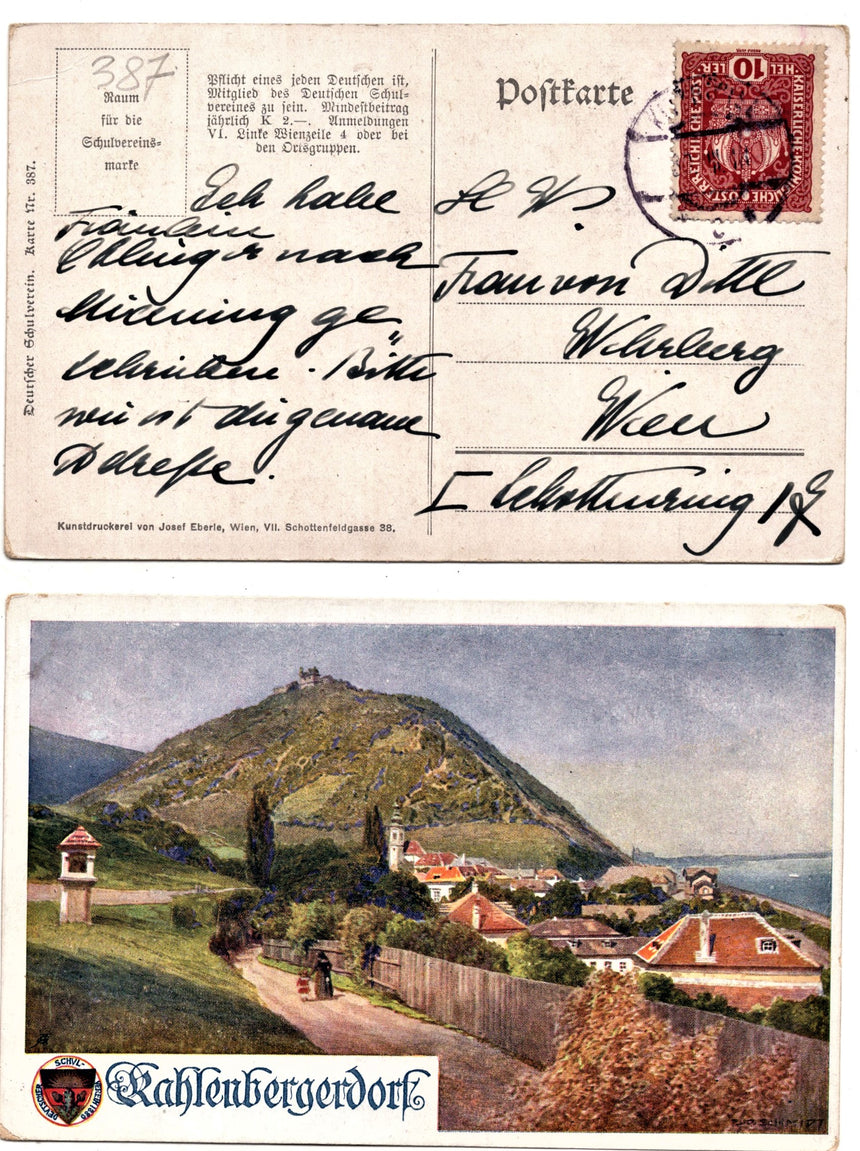 387
Raum
für die
Schulvereins=
marke
Pflicht eines jeden Deutschen ist,
Mitglied des Deutschen Schul-
vereines zu sein. Mindestbeitrag
jährlich K 2.—. Anmeldungen
VI. Linke Wienzeile 4 oder bei
den Ortsgruppen.
Postkarte
HEL 10 LER
KAISERLICHE KÖNIGLICHE ÖSTERREICHISCHE POST
Deutscher Schulverein. Karte Nr. 387.
Ich habe
Fräulein
nach
Mieming ge„
schrieben. Bitte
wie ist die genaue
Adresse.
Frau von Dittl
Wehrberg
Wien
I Schottenring
Kunstdruckerei von Josef Eberle, Wien, VII. Schottenfeldgasse 38.
SCHVL-
VEREIN 1880
DEVTSCHER
Kahlenbergerdorf
SCHMIDT